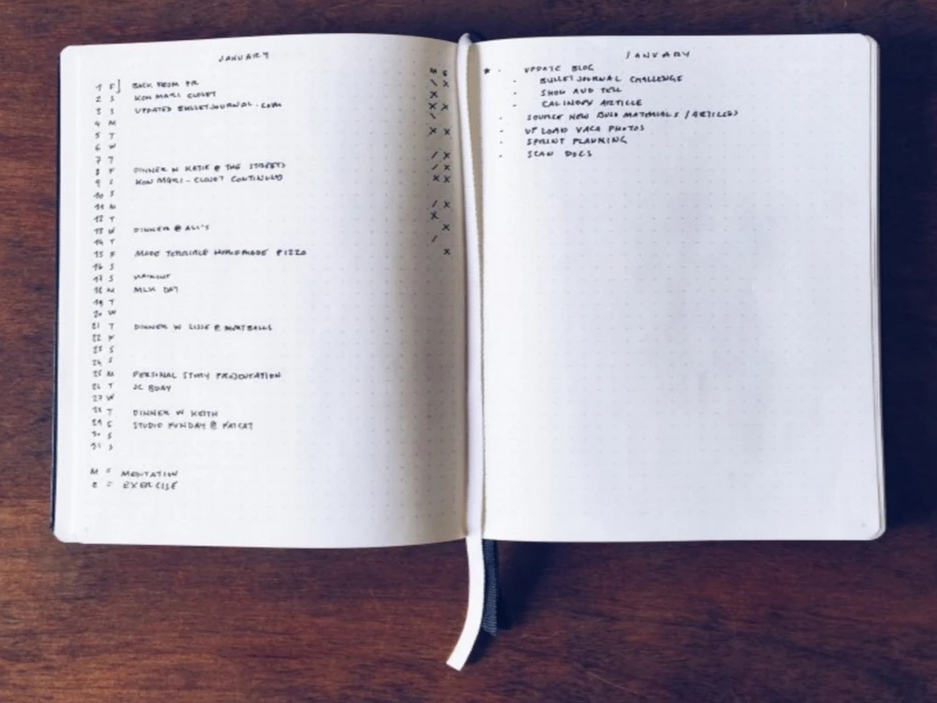 JANUARY
M E
1 F BACK FROM PR / X
2 S KON MARI CLOSET X
3 S UPDATED BULLETJOURNAL.COM X
4 M \
5 T X X
6 W
7 T / X
8 F DINNER W KATIE @ THE STREETS / X
9 S KON MARI - CLOSET CONTINUED X X
10 S
11 M / X
12 T X
13 W DINNER @ ALI'S X
14 T /
15 F MADE TERRIBLE HOMEMADE PIZZA X
16 S
17 S HAIRCUT
18 M MLK DAY
19 T
20 W
21 T DINNER W LISSE @ MEATBALLS
22 F
23 S
24 S
25 M PERSONAL STORY PRESENTATION
26 T JC BDAY
27 W
28 T DINNER W KEITH
29 F STUDIO FUNDAY @ FATCAT
30 S
31 S
M = MEDITATION
E = EXERCISE
JANUARY
* · UPDATE BLOG
· BULLET JOURNAL CHALLENGE
· SHOW AND TELL
· CALINDEX ARTICLE
· SOURCE NEW BUJO MATERIALS / ARTICLES
· UPLOAD VACA PHOTOS
· SPRINT PLANNING
· SCAN DOCS